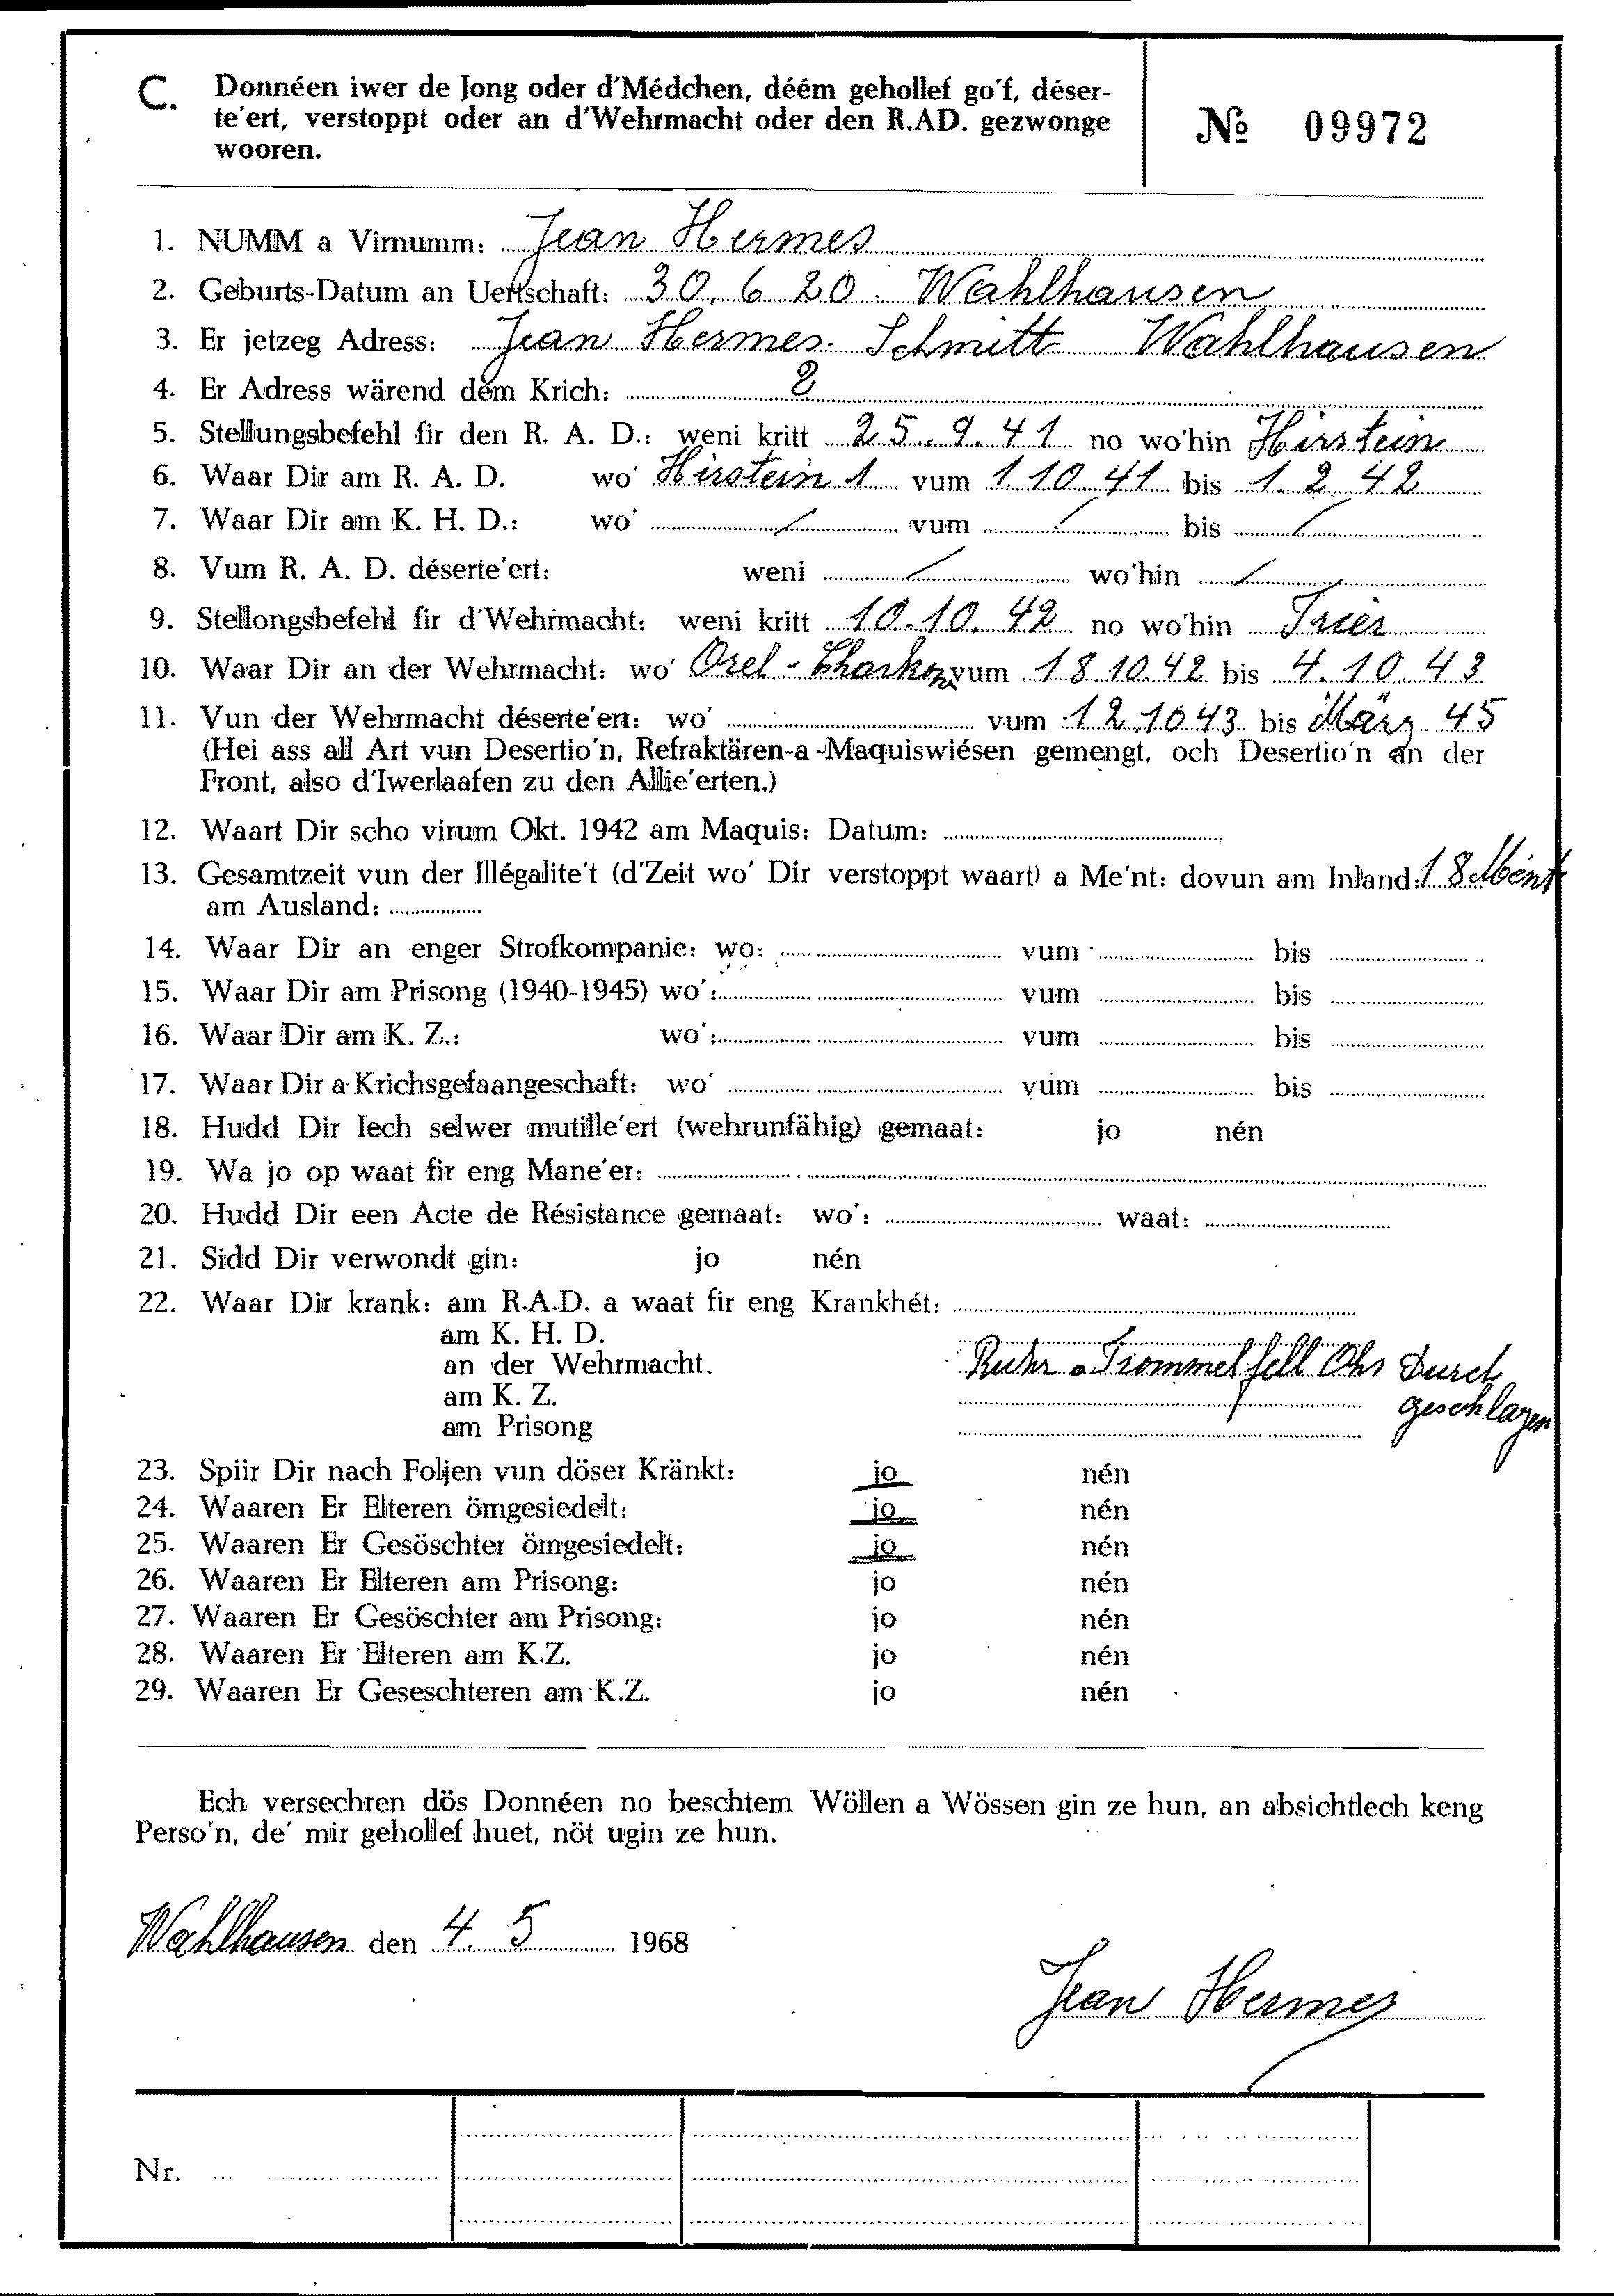 C. Donnéen iwer de Jong oder d'Médchen, déém gehollef go'f, déser-
te'ert, verstoppt oder an d'Wehrmacht oder den R.AD. gezwonge
wooren.
№ 09972
1. NUMM a Virnumm: Jean Hermes
2. Geburts-Datum an Uertschaft: 30. 6 20. Wahlhausen
3. Er jetzeg Adress: Jean Hermes-Schmitt Wahlhausen
4. Er Adress wärend dem Krich:
5. Stellungsbefehl fir den R. A. D.: weni kritt 25. 9. 41 no wo'hin Hirstein
6. Waar Dir am R. A. D. wo' Hirstein 1 vum 1.10.41 bis 1. 2. 42
7. Waar Dir am K. H. D.: wo' / vum / bis /
8. Vum R. A. D. déserte'ert: weni / wo'hin /
9. Stellongsbefehl fir d'Wehrmacht: weni kritt 10.10.42 no wo'hin Trier
10. Waar Dir an der Wehrmacht: wo' Orel - Charkow vum 18.10.42 bis 4.10.43
11. Vun der Wehrmacht déserte'ert: wo' vum 12.10.43 bis März 45
(Hei ass all Art vun Desertio'n, Refraktären-a-Maquiswiésen gemengt, och Desertio'n an der
Front, also d'Iwerlaafen zu den Allie'erten.)
12. Waart Dir scho virum Okt. 1942 am Maquis: Datum:
13. Gesamtzeit vun der Illégalite't (d'Zeit wo' Dir verstoppt waart) a Me'nt: dovun am Inland: 18 Ment
am Ausland:
14. Waar Dir an enger Strofkompanie: wo: vum bis
15. Waar Dir am Prisong (1940-1945) wo': vum bis
16. Waar Dir am K. Z.: wo': vum bis
17. Waar Dir a Krichsgefaangeschaft: wo' vum bis
18. Hudd Dir Iech selwer mutille'ert (wehrunfähig) gemaat: jo nén
19. Wa jo op waat fir eng Mane'er:
20. Hudd Dir een Acte de Résistance gemaat: wo': waat:
21. Sidd Dir verwondt gin: jo nén
22. Waar Dir krank: am R.A.D. a waat fir eng Krankhét:
am K. H. D.
an der Wehrmacht. Ruhr. Trommelfell Ohr Durch
am K. Z. geschlagen
am Prisong
23. Spiir Dir nach Foljen vun döser Kränkt: jo nén
24. Waaren Er Elteren ömgesiedelt: jo nén
25. Waaren Er Gesöschter ömgesiedelt: jo nén
26. Waaren Er Elteren am Prisong: jo nén
27. Waaren Er Gesöschter am Prisong: jo nén
28. Waaren Er Elteren am K.Z. jo nén
29. Waaren Er Geseschteren am K.Z. jo nén
Ech versechren dös Donnéen no beschtem Wöllen a Wössen gin ze hun, an absichtlech keng
Perso'n, de' mir gehollef huet, nöt ugin ze hun.
Wahlhausen den 4. 5 1968
Jean Hermes
Nr.